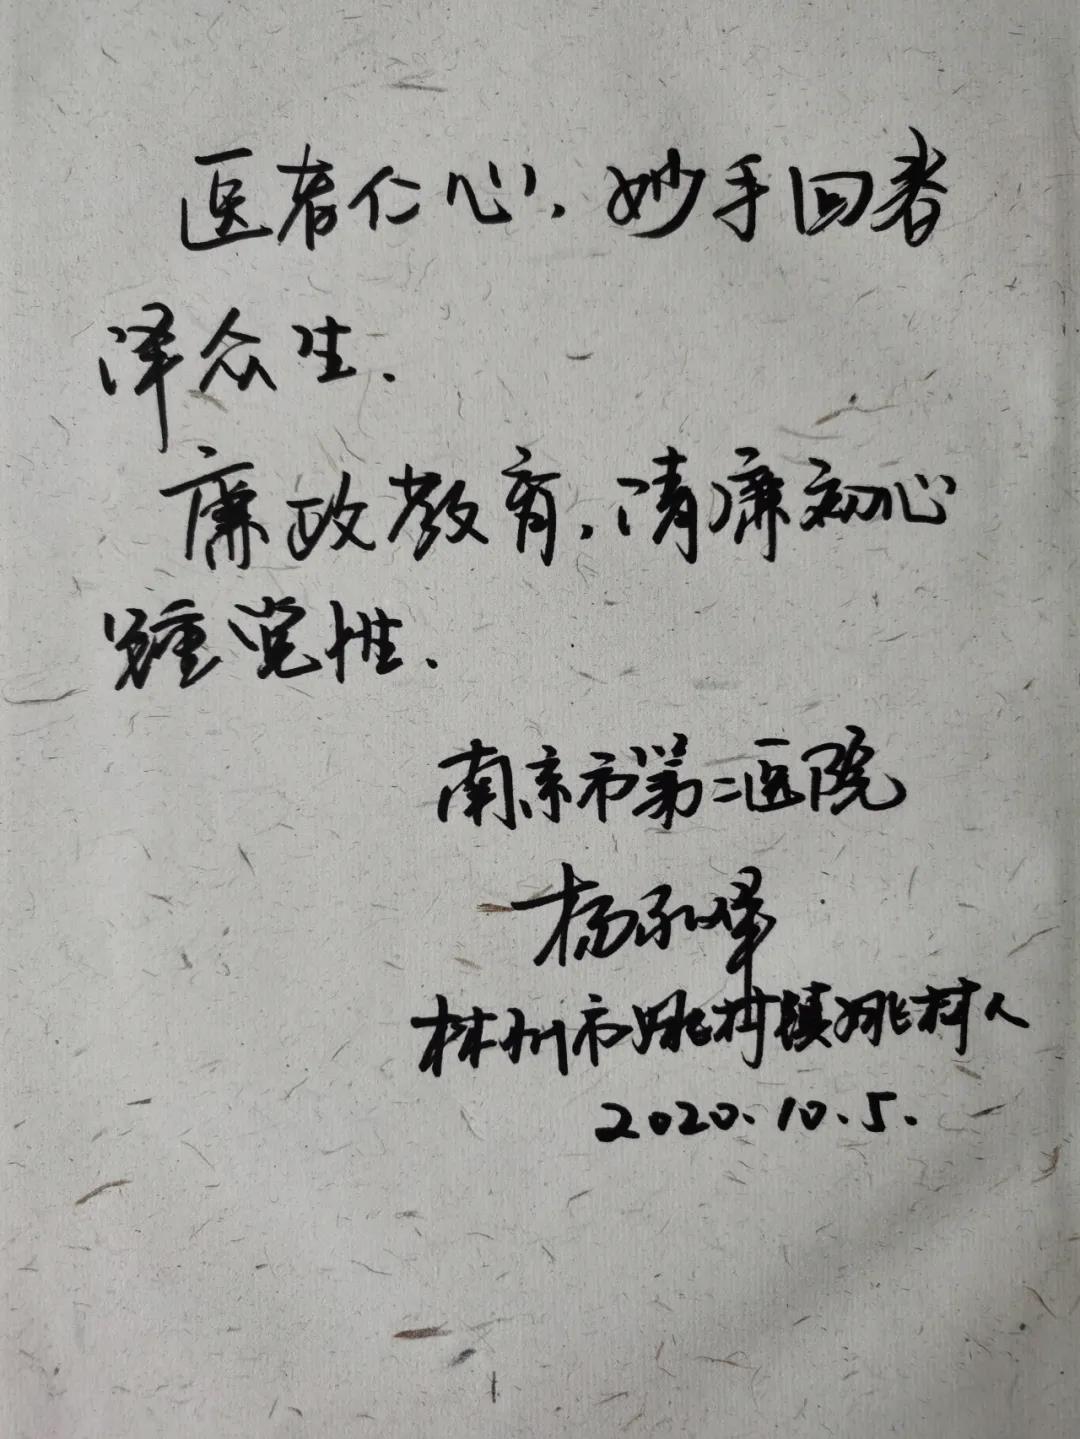 医者仁心,妙手回春
泽众生.
廉政教育,清廉初心
锺党性.
南京市第二医院
杨永峰
林州市姚村镇姚村人
2020.10.5.